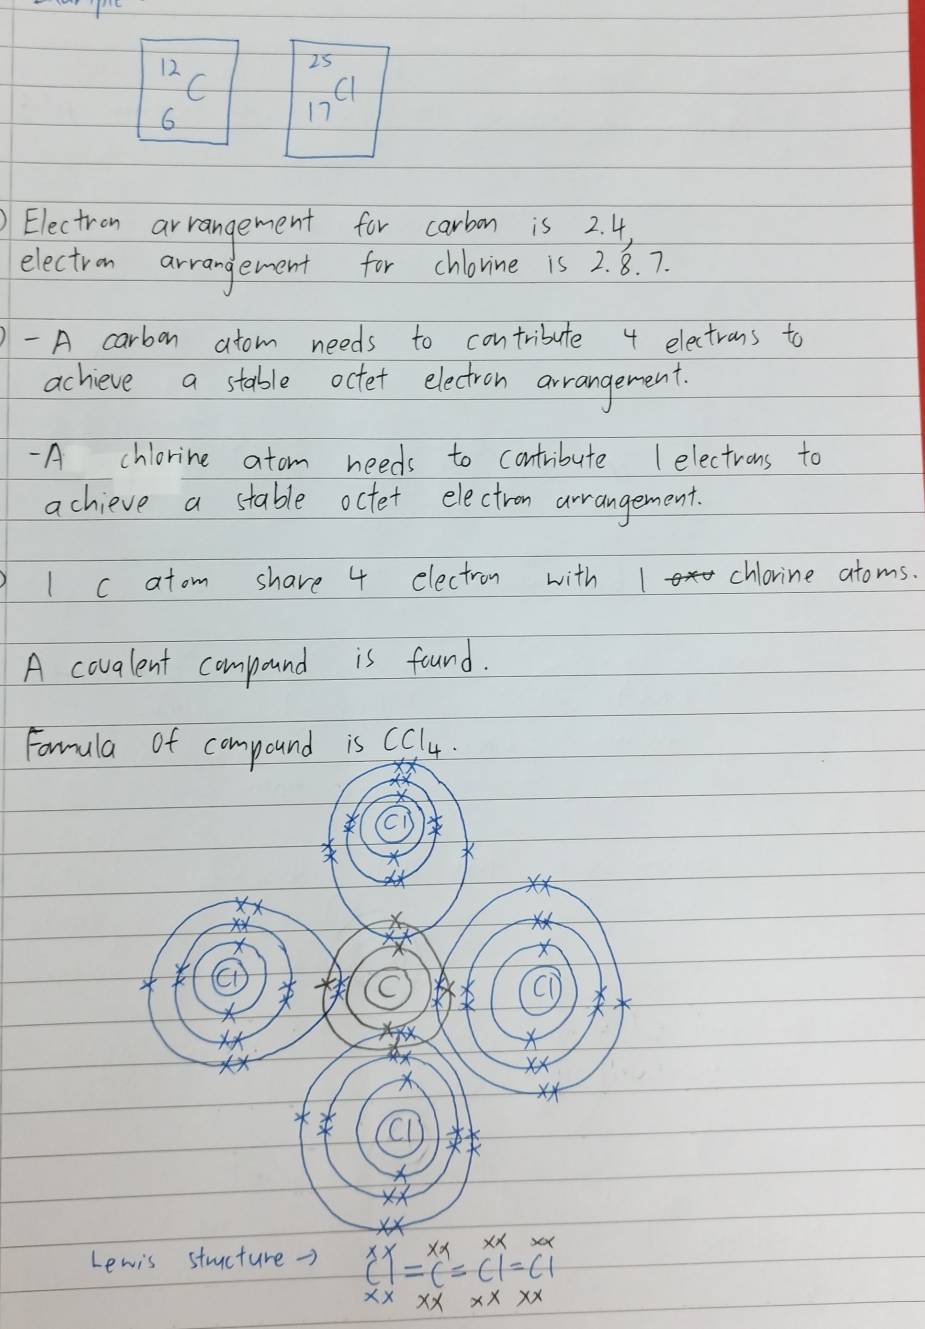 12
C
6
25
Cl
17
Electron arrangement for carbon is 2.4,
electron arrangement for chlorine is 2.8.7.
- A carbon atom needs to contribute 4 electrons to
achieve a stable octet electron arrangement.
- A chlorine atom needs to contribute 1 electrons to
achieve a stable octet electron arrangement.
1 C atom share 4 electron with 1 chlorine atoms.
A covalent compound is found.
Formula of compound is CCl4.
Cl
Cl C Cl
Cl
Lewis structure → Cl = C = Cl = Cl